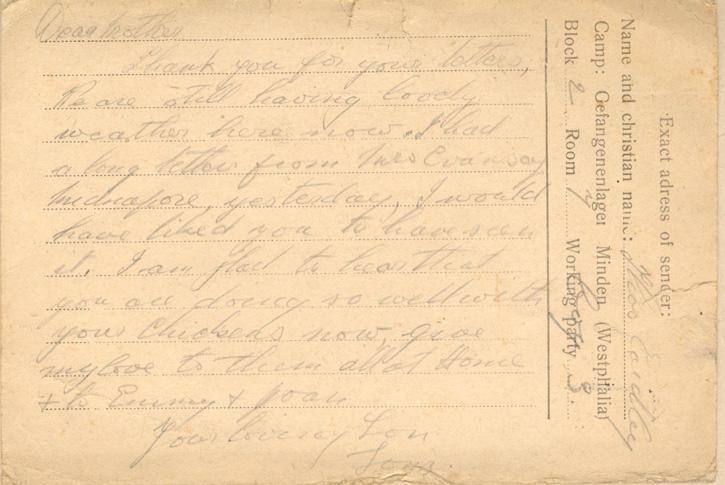 Dear Mother
Thank you for your letters,
We are still having lovely
weather here now. I had
a long letter from Mrs Evans of
Midnapore, yesterday, I would
have liked you to have seen
it. I am glad to hear that
you are doing so well with
your Chickens now, give
my love to them all at Home
+ to Emmy + Joan
Your loving Son
Exact adress of sender:
Name and christian name: Thos
Camp: Gefangenenlager Minden (Westphalia)
Block 2 Room Working party